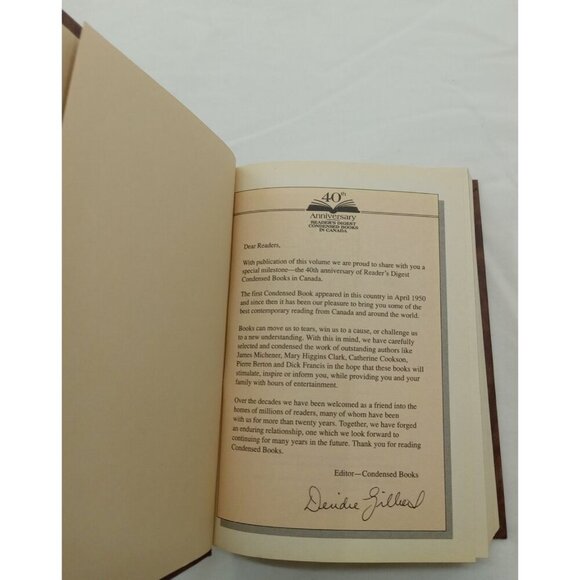 40th
Anniversary
READER'S DIGEST
CONDENSED BOOKS
IN CANADA
Dear Readers,
With publication of this volume we are proud to share with you a
special milestone—the 40th anniversary of Reader's Digest
Condensed Books in Canada.
The first Condensed Book appeared in this country in April 1950
and since then it has been our pleasure to bring you some of the
best contemporary reading from Canada and around the world.
Books can move us to tears, win us to a cause, or challenge us
to a new understanding. With this in mind, we have carefully
selected and condensed the work of outstanding authors like
James Michener, Mary Higgins Clark, Catherine Cookson,
Pierre Berton and Dick Francis in the hope that these books will
stimulate, inspire or inform you, while providing you and your
family with hours of entertainment.
Over the decades we have been welcomed as a friend into the
homes of millions of readers, many of whom have been
with us for more than twenty years. Together, we have forged
an enduring relationship, one which we look forward to
continuing for many years in the future. Thank you for reading
Condensed Books.
Editor—Condensed Books
Deirdre Gilbert